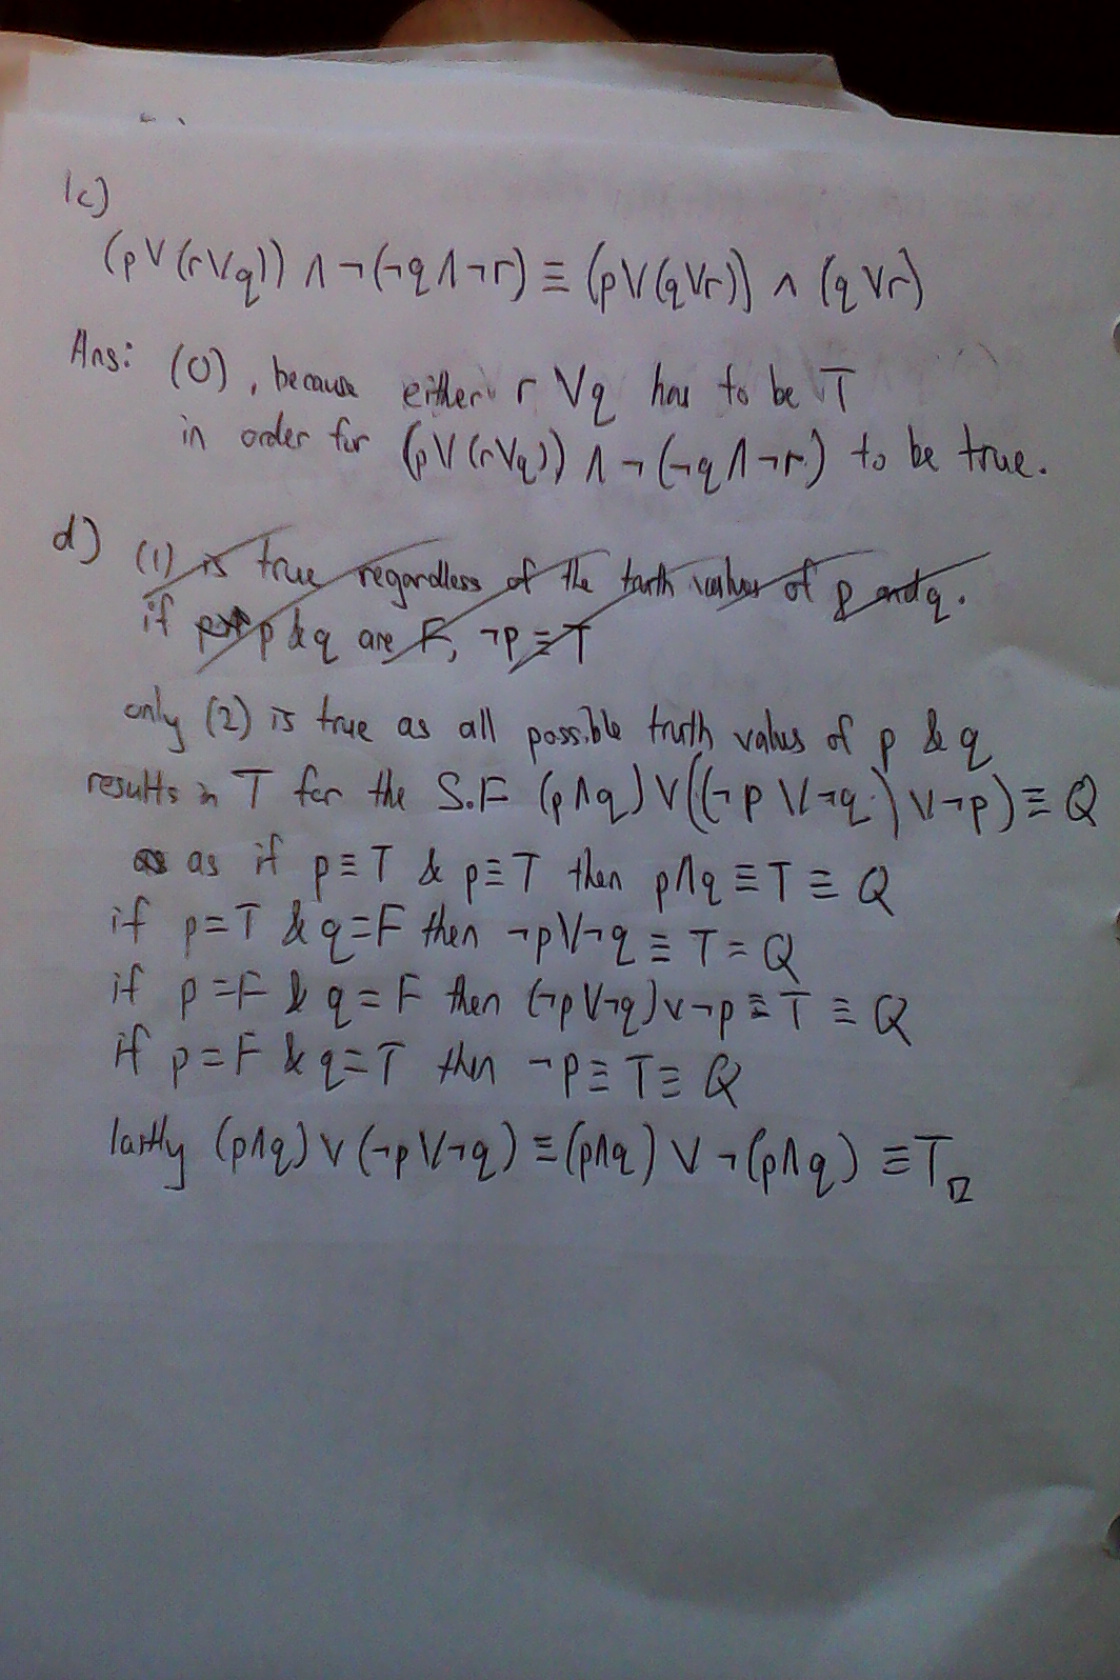 1c)
(p∨(r∨q)) ∧ ¬(¬q∧¬r) ≡ (p∨(q∨r)) ∧ (q∨r)
Ans: (0), because either r ∨q has to be T
in order for (p∨(r∨q)) ∧ ¬(¬q∧¬r) to be true.
d) (1) is true regardless of the truth values of p and q.
if p & q are F, ¬p ≡ T
only (2) is true as all possible truth values of p & q
results in T for the S.F (p∧q)∨((¬p∨¬q)∨¬p) ≡ Q
as if p≡T & p≡T then p∧q ≡ T ≡ Q
if p=T & q=F then ¬p∨¬q ≡ T = Q
if p=F & q=F then (¬p∨¬q)∨¬p ≡ T ≡ Q
if p=F & q=T then ¬p ≡ T ≡ Q
lastly (p∧q)∨(¬p∨¬q) ≡ (p∧q) ∨ ¬(p∧q) ≡ T